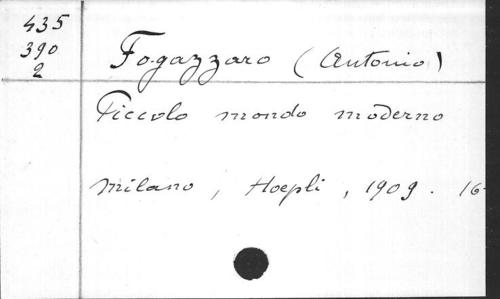 435
390
2
Fogazzaro (Antonio)
Piccolo mondo moderno
Milano, Hoepli, 1909. 16-